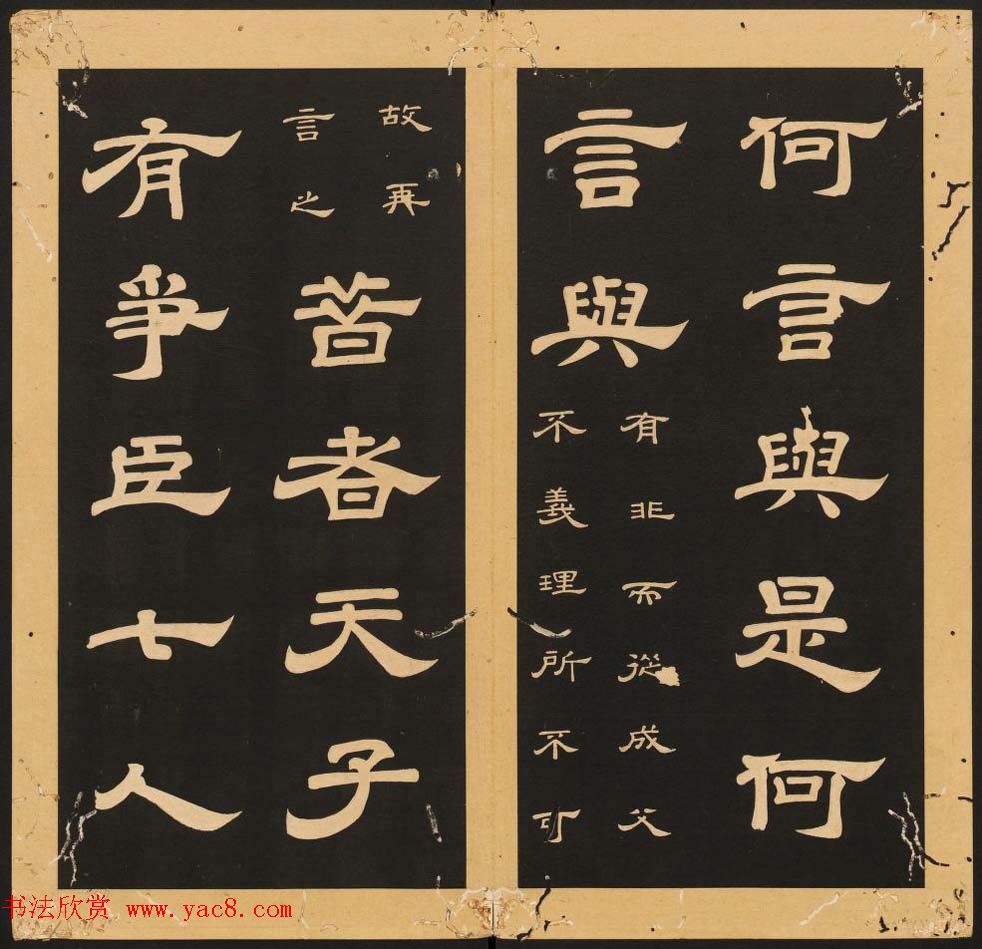 何言與是何
言與
有非而從成父
不義理所不可
故再
言之
昔者天子
有爭臣七人
书法欣赏 www.yac8.com